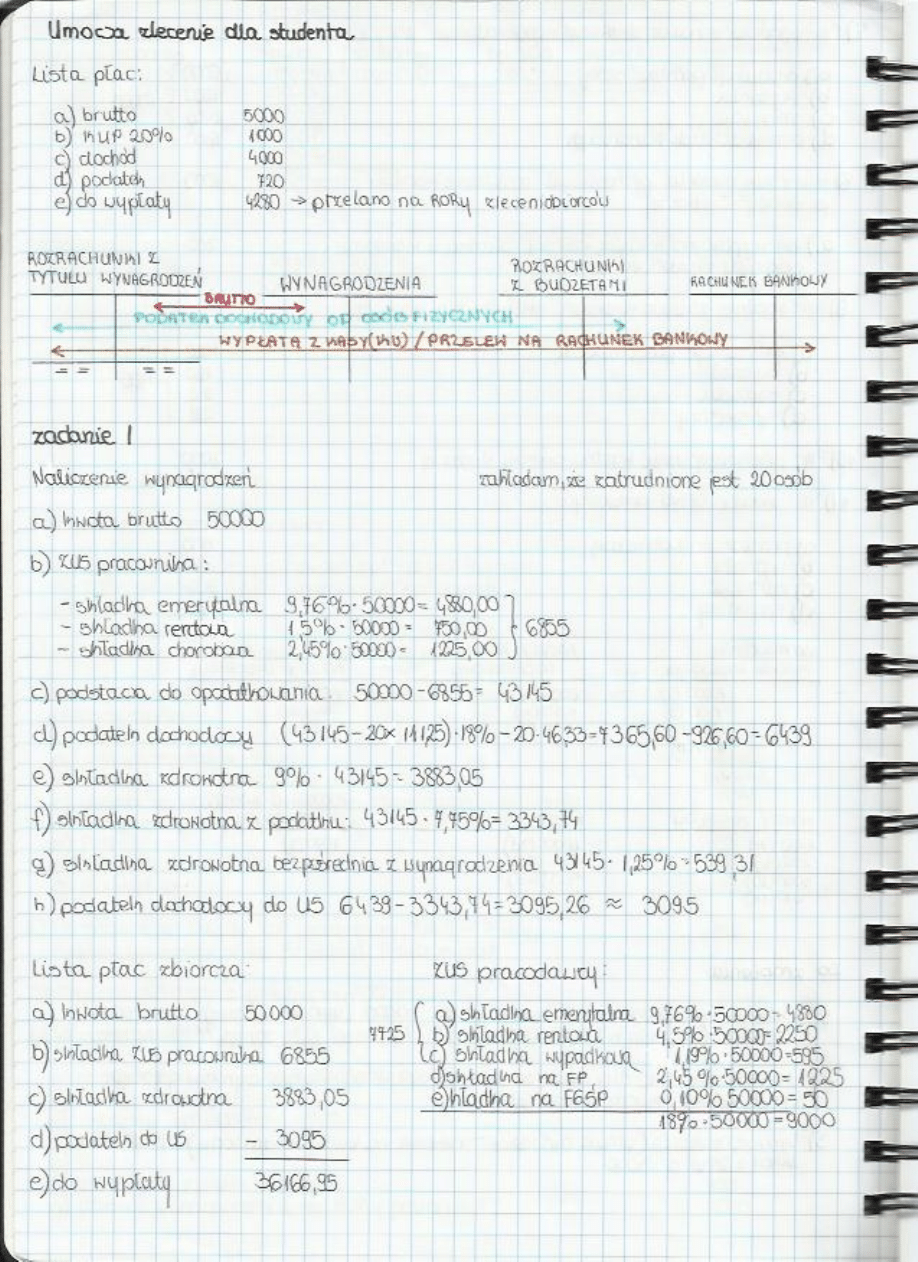 Umowa zlecenie dla studenta
Lista płac:
a) brutto 5000
b) KUP 20% 1000
c) dochód 4000
d) podatek 720
e) do wypłaty 4280 → przelano na RORy zleceniobiorców
ROZRACHUNKI Z TYTUŁU WYNAGRODZEŃ
WYNAGRODZENIA
ROZRACHUNKI Z BUDŻETAMI
RACHUNEK BANKOWY
BRUTTO
PODATEK DOCHODOWY OD OSÓB FIZYCZNYCH
WYPŁATA Z KASY(KW) / PRZELEW NA RACHUNEK BANKOWY
= = = =
zadanie 1
Naliczenie wynagrodzeń zakładam, że zatrudnione jest 20 osób
a) kwota brutto 50000
b) ZUS pracownika:
- składka emerytalna 9,76% · 50000 = 4880,00
- składka rentowa 1,5% · 50000 = 750,00 } 6855
- składka chorobowa 2,45% · 50000 = 1225,00
c) podstawa do opodatkowania: 50000 - 6855 = 43145
d) podatek dochodowy (43145 - 20 × 111,25) · 18% - 20 · 46,33 = 7365,60 - 926,60 = 6439
e) składka zdrowotna 9% · 43145 = 3883,05
f) składka zdrowotna z podatku: 43145 · 7,75% = 3343,74
g) składka zdrowotna bezpośrednia z wynagrodzenia 43145 · 1,25% = 539,31
h) podatek dochodowy do US 6439 - 3343,74 = 3095,26 ≈ 3095
Lista płac zbiorcza:
a) kwota brutto 50000
b) składka ZUS pracownika 6855
c) składka zdrowotna 3883,05
d) podatek do US - 3095
e) do wypłaty 36166,95
ZUS pracodawcy:
a) składka emerytalna 9,76% · 50000 = 4880
7725 { b) składka rentowa 4,5% · 50000 = 2250
c) składka wypadkowa 1,19% · 50000 = 595
d) składka na FP 2,45% · 50000 = 1225
e) kładka na FGŚP 0,10% 50000 = 50
18% · 50000 = 9000